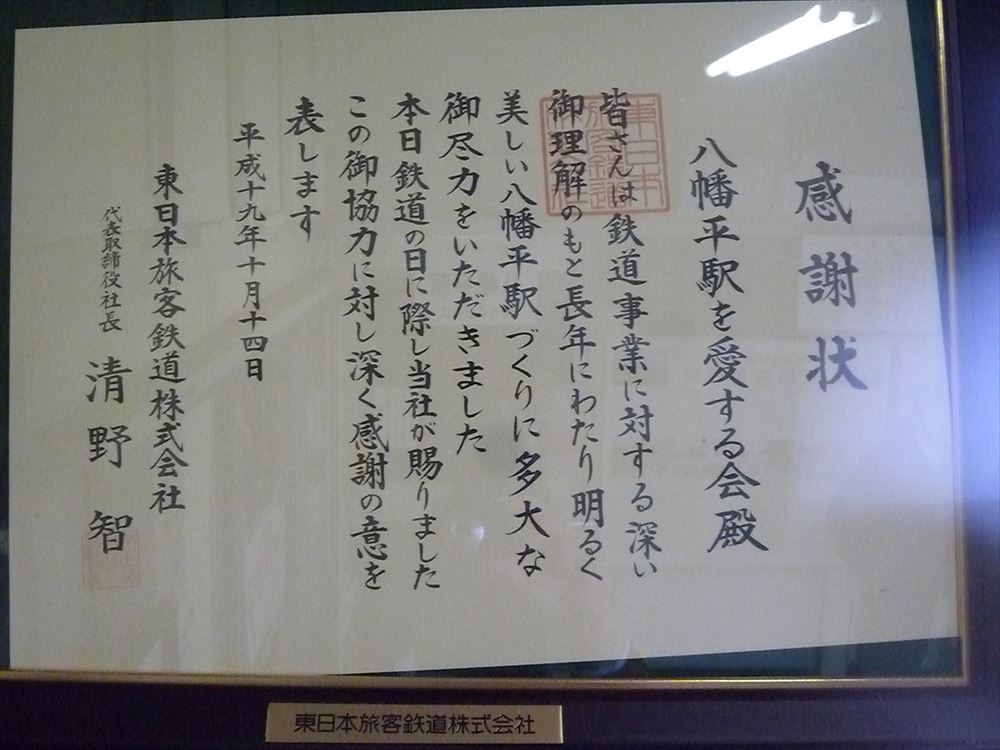 感謝状
八幡平駅を愛する会殿
皆さんは鉄道事業に対する深い
御理解のもと長年にわたり明るく
美しい八幡平駅づくりに多大な
御尽力をいただきました
本日鉄道の日に際し当社が賜りました
この御協力に対し深く感謝の意を
表します
平成十九年十月十四日
東日本旅客鉄道株式会社
代表取締役社長 清野智
東日本旅客鉄道株式会社